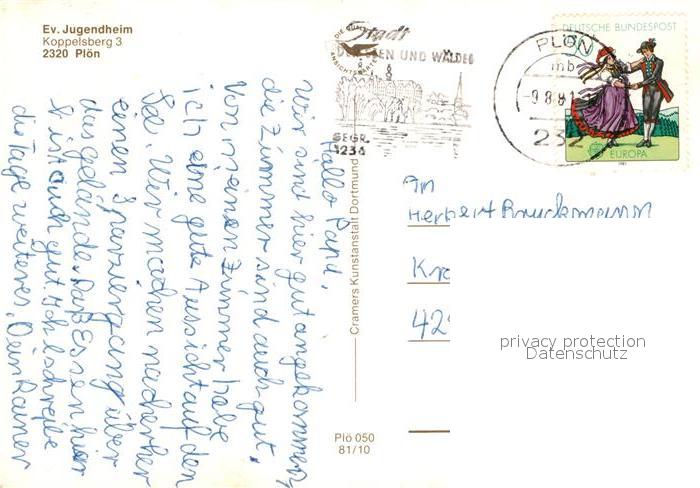 Ev. Jugendheim
Koppelsberg 3
2320 Plön
Stadt
SEEN UND WÄLDER
GEGR.
1236
PLÖN
mb
-9.8.81
232
DEUTSCHE BUNDESPOST
50
EUROPA
Hallo Papi,
wir sint hier gut angekommen,
die Zimmer sind auch gut.
Von meinen Zimmer habe
ich eine gute Aussicht auf den
See. Wir machen nacherher
einen Sparziergang über
das gelände. Das Essen hier
ist auch gut. Ich schreibe
die Tage weiteres. Dein Rainer
Cramers Kunstanstalt Dortmund
Plö 050
81/10
An
Herbert Bruckmann
Kr
42
privacy protection
Datenschutz